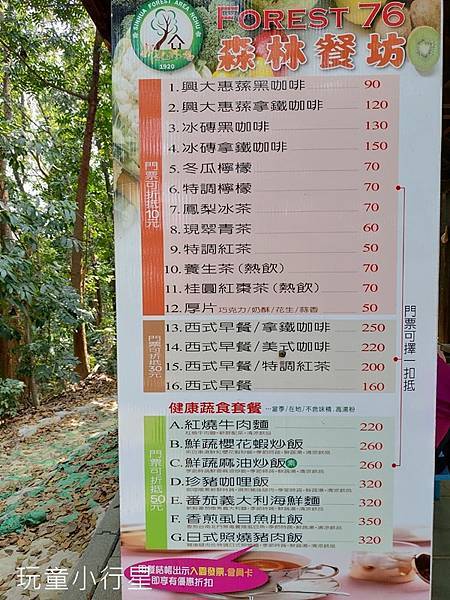 XINHUA FOREST AREA NCHU
1920
FOREST 76
森林餐坊
門票可折抵10元
1.興大惠蓀黑咖啡 90
2.興大惠蓀拿鐵咖啡 120
3.冰磚黑咖啡 130
4.冰磚拿鐵咖啡 150
5.冬瓜檸檬 70
6.特調檸檬 70
7.鳳梨冰茶 70
8.現翠青茶 60
9.特調紅茶 50
10.養生茶(熱飲) 70
11.桂圓紅棗茶(熱飲) 70
12.厚片 巧克力/奶酥/花生/蒜香 50
門票可折抵30元
13.西式早餐/拿鐵咖啡 250
14.西式早餐/美式咖啡 220
15.西式早餐/特調紅茶 200
16.西式早餐 160
門票可擇一扣抵
健康蔬食套餐 …當季/在地/不含味精.高湯粉
門票可折抵50元
A.紅燒牛肉麵 220
B.鮮蔬櫻花蝦炒飯 260
C.鮮蔬麻油炒飯 素 260
D.珍豬咖哩飯 320
E.番茄義大利海鮮麵 320
F.香煎虱目魚肚飯 350
G.日式照燒豬肉飯 320
用餐結帳出示入園發票.會員卡
即享有優惠折扣
玩童小行星